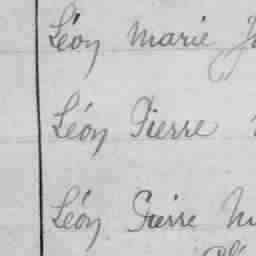 Léon Marie
Léon Pierre
Léon Pierre